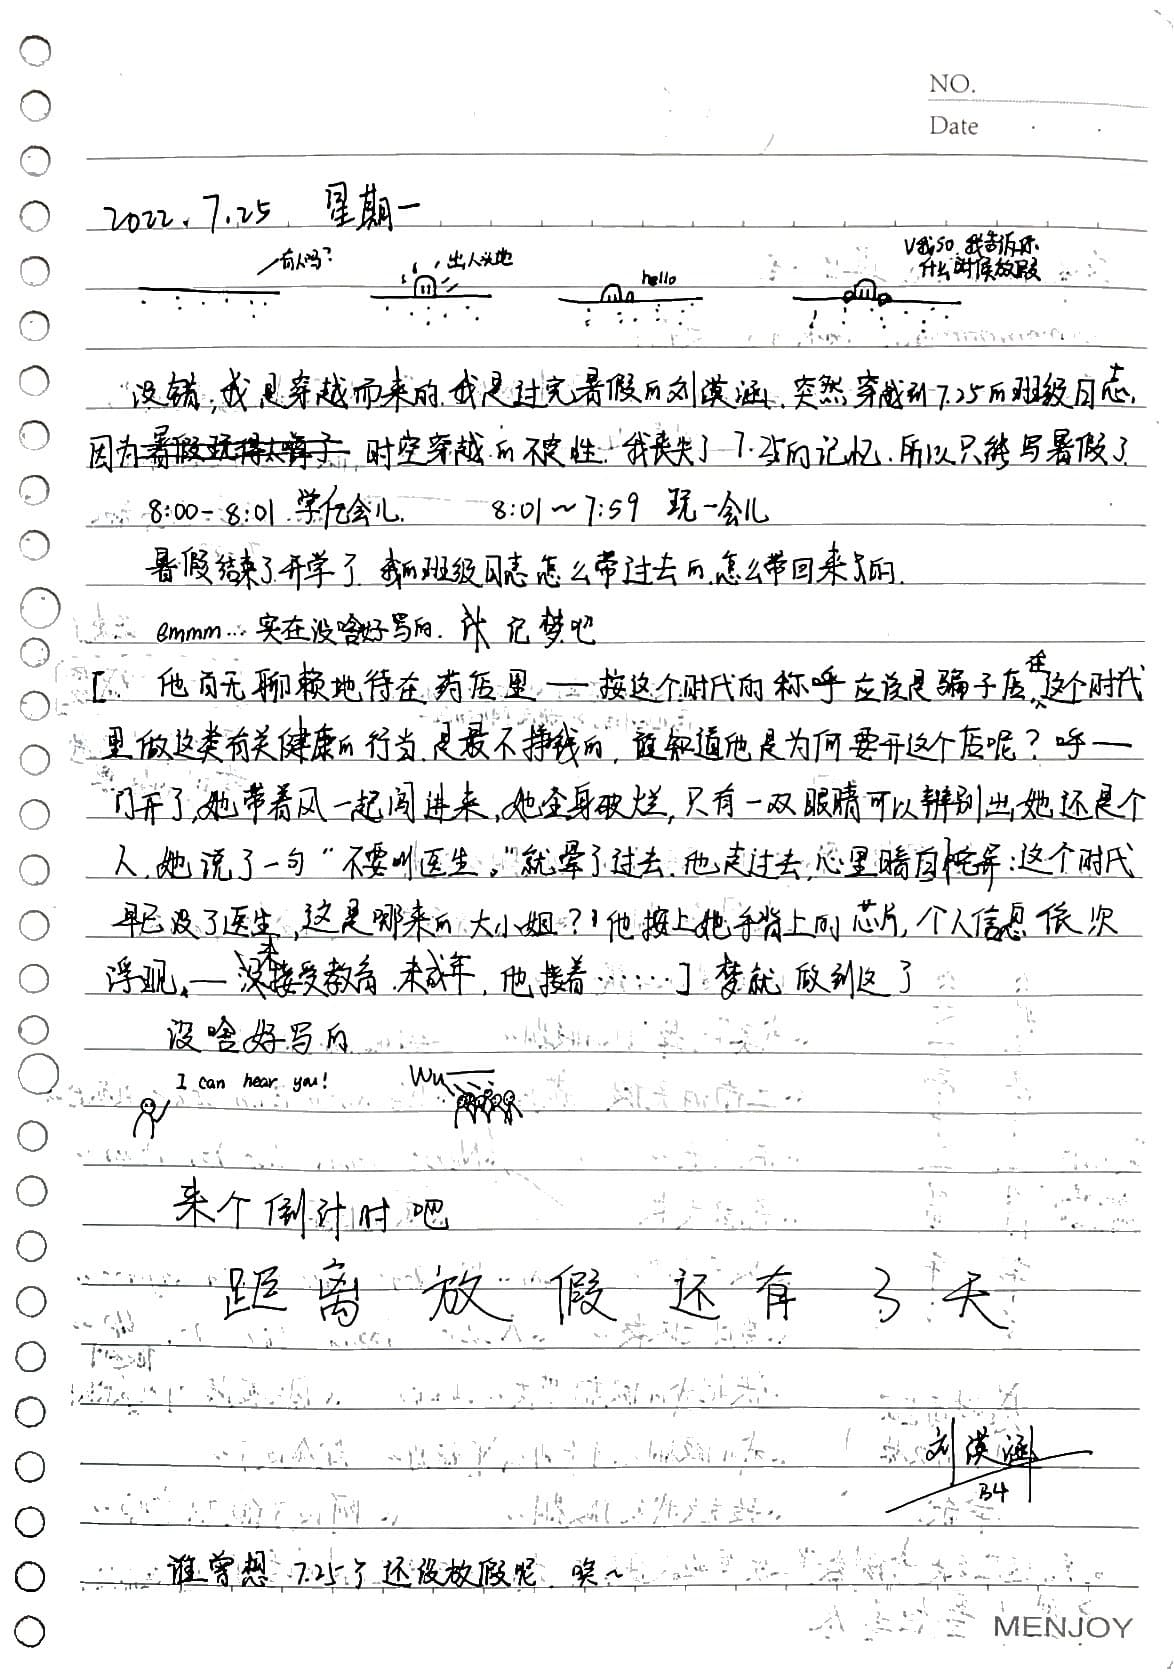 NO.
Date
2022.7.25 星期一
有人吗?
出人头地
hello
V我50.我告诉你
什么时候放假
没错,我是穿越而来的.我是过完暑假的刘漠涵.突然穿越到7.25的班级日志,
因为暑假玩得太嗨了 时空穿越的不定性.我丧失了7.25的记忆.所以只能写暑假了
8:00-8:01 学亿会儿. 8:01~7:59 玩一会儿
暑假结束了开学了.我的班级日志怎么带过去的.怎么带回来的.
emmm...实在没啥好写的. 记梦吧
[. 他百无聊赖地待在药店里——按这个时代的称呼应该是骗子店.在这个时代
里做这类有关健康的行当.是最不挣钱的,谁知道他是为何要开这个店呢?呼——
门开了,她带着风一起闯进来,她全身破烂,只有一双眼睛可以辨别出她还是个
人.她说了一句"不要叫医生。"就晕了过去.他走过去,心里暗自诧异:这个时代
早已没了医生,这是哪来的大小姐?他按上她手背上的芯片,个人信息依次
浮现.——未接受教育.未成年,他接着……]梦就做到这了
没啥好写的
I can hear you!
Wu——
来个倒计时吧
距离放假还有3天
刘漠涵
34
谁曾想 7.25了还没放假呢.唉~
MENJOY